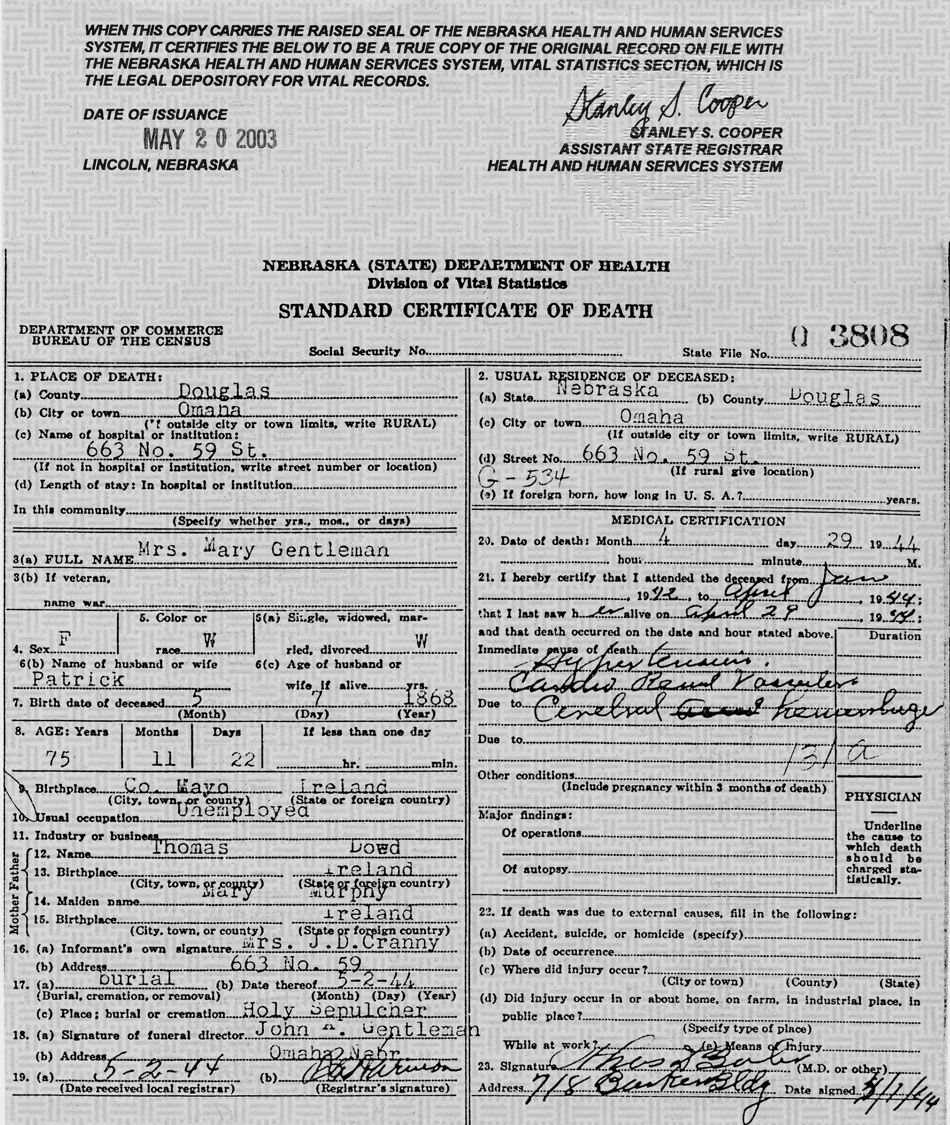 WHEN THIS COPY CARRIES THE RAISED SEAL OF THE NEBRASKA HEALTH AND HUMAN SERVICES
SYSTEM, IT CERTIFIES THE BELOW TO BE A TRUE COPY OF THE ORIGINAL RECORD ON FILE WITH
THE NEBRASKA HEALTH AND HUMAN SERVICES SYSTEM, VITAL STATISTICS SECTION, WHICH IS
THE LEGAL DEPOSITORY FOR VITAL RECORDS.
DATE OF ISSUANCE
MAY 20 2003
LINCOLN, NEBRASKA
Stanley S. Cooper
STANLEY S. COOPER
ASSISTANT STATE REGISTRAR
HEALTH AND HUMAN SERVICES SYSTEM
NEBRASKA (STATE) DEPARTMENT OF HEALTH
Division of Vital Statistics
STANDARD CERTIFICATE OF DEATH
DEPARTMENT OF COMMERCE
BUREAU OF THE CENSUS
Social Security No.
State File No. 0 3808
1. PLACE OF DEATH:
(a) County Douglas
(b) City or town Omaha
(If outside city or town limits, write RURAL)
(c) Name of hospital or institution:
663 No. 59 St.
(If not in hospital or institution, write street number or location)
(d) Length of stay: In hospital or institution
In this community
(Specify whether yrs., mos., or days)
3(a) FULL NAME Mrs. Mary Gentleman
3(b) If veteran,
name war
4. Sex F
5. Color or race W
6(a) Single, widowed, married, divorced W
6(b) Name of husband or wife
Patrick
6(c) Age of husband or
wife if alive yrs.
7. Birth date of deceased 5 7 1868
(Month) (Day) (Year)
8. AGE: Years Months Days If less than one day
75 11 22 hr. min.
9. Birthplace Co. Mayo Ireland
(City, town, or county) (State or foreign country)
10. Usual occupation Unemployed
11. Industry or business
Father
12. Name Thomas Dowd
13. Birthplace Ireland
(City, town, or county) (State or foreign country)
Mother
14. Maiden name Mary Murphy
15. Birthplace Ireland
(City, town, or county) (State or foreign country)
16. (a) Informant's own signature Mrs. J.D.Cranny
(b) Address 663 No. 59
17. (a) burial (b) Date thereof 5-2-44
(Burial, cremation, or removal) (Month) (Day) (Year)
(c) Place; burial or cremation Holy Sepulcher
18. (a) Signature of funeral director John A. Gentleman
(b) Address Omaha Nebr.
19. (a) 5-2-44 (b)
(Date received local registrar) (Registrar's signature)
2. USUAL RESIDENCE OF DECEASED:
(a) State Nebraska (b) County Douglas
(c) City or town Omaha
(If outside city or town limits, write RURAL)
(d) Street No. 663 No. 59 St.
(If rural give location)
G-534
(e) If foreign born, how long in U. S. A.? years.
MEDICAL CERTIFICATION
20. Date of death: Month 4 day 29 1944
hour minute M.
21. I hereby certify that I attended the deceased from Jan
1942, to April, 1944;
that I last saw her alive on April 29, 1944;
and that death occurred on the date and hour stated above.
Duration
Immediate cause of death
Hypertension.
Cardio Renal Vascular
Due to Cerebral hemorrhage
Due to
131a
Other conditions
(Include pregnancy within 3 months of death)
Major findings:
Of operations
Of autopsy
PHYSICIAN
Underline
the cause to
which death
should be
charged sta-
tistically.
22. If death was due to external causes, fill in the following:
(a) Accident, suicide, or homicide (specify)
(b) Date of occurrence
(c) Where did injury occur?
(City or town) (County) (State)
(d) Did injury occur in or about home, on farm, in industrial place, in
public place?
(Specify type of place)
While at work? (e) Means of injury
23. Signature (M.D. or other)
Address 718 Barker Bldg Date signed 5/1/44